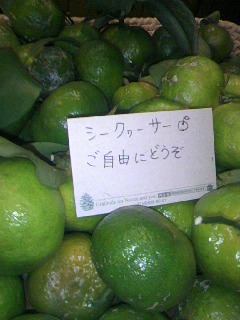 シークヮーサー
ご自由にどうぞ